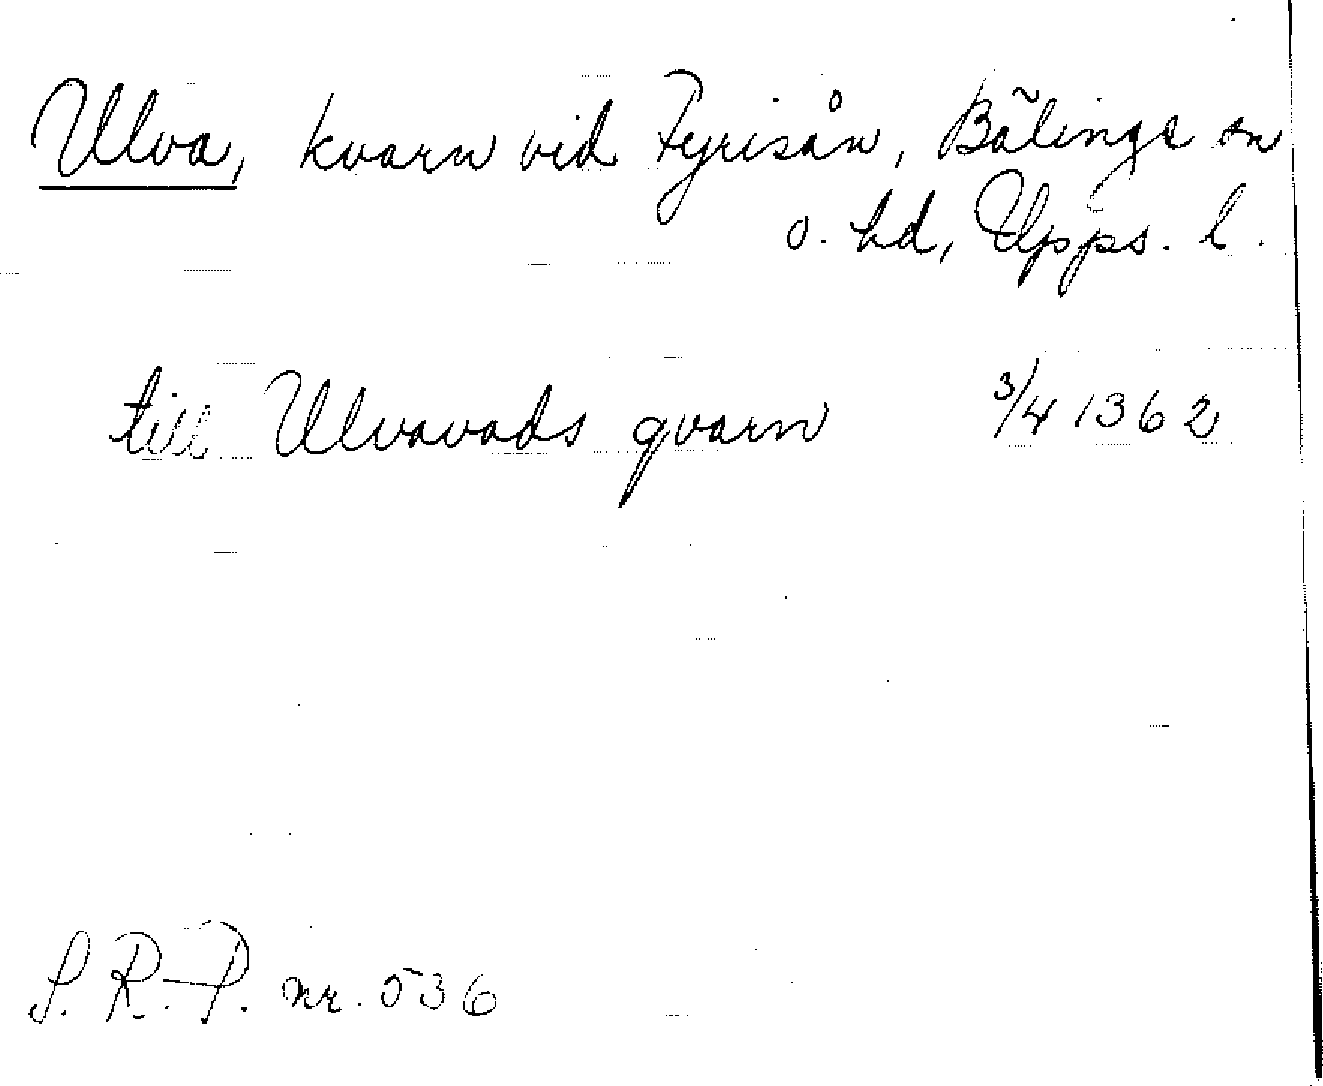 Ulva, kvarn vid Fyrisån, Bälinge sn
o. hd, Upps. l.
till Ulvavads qvarn 3/4 1362
S. R.-P. nr. 536